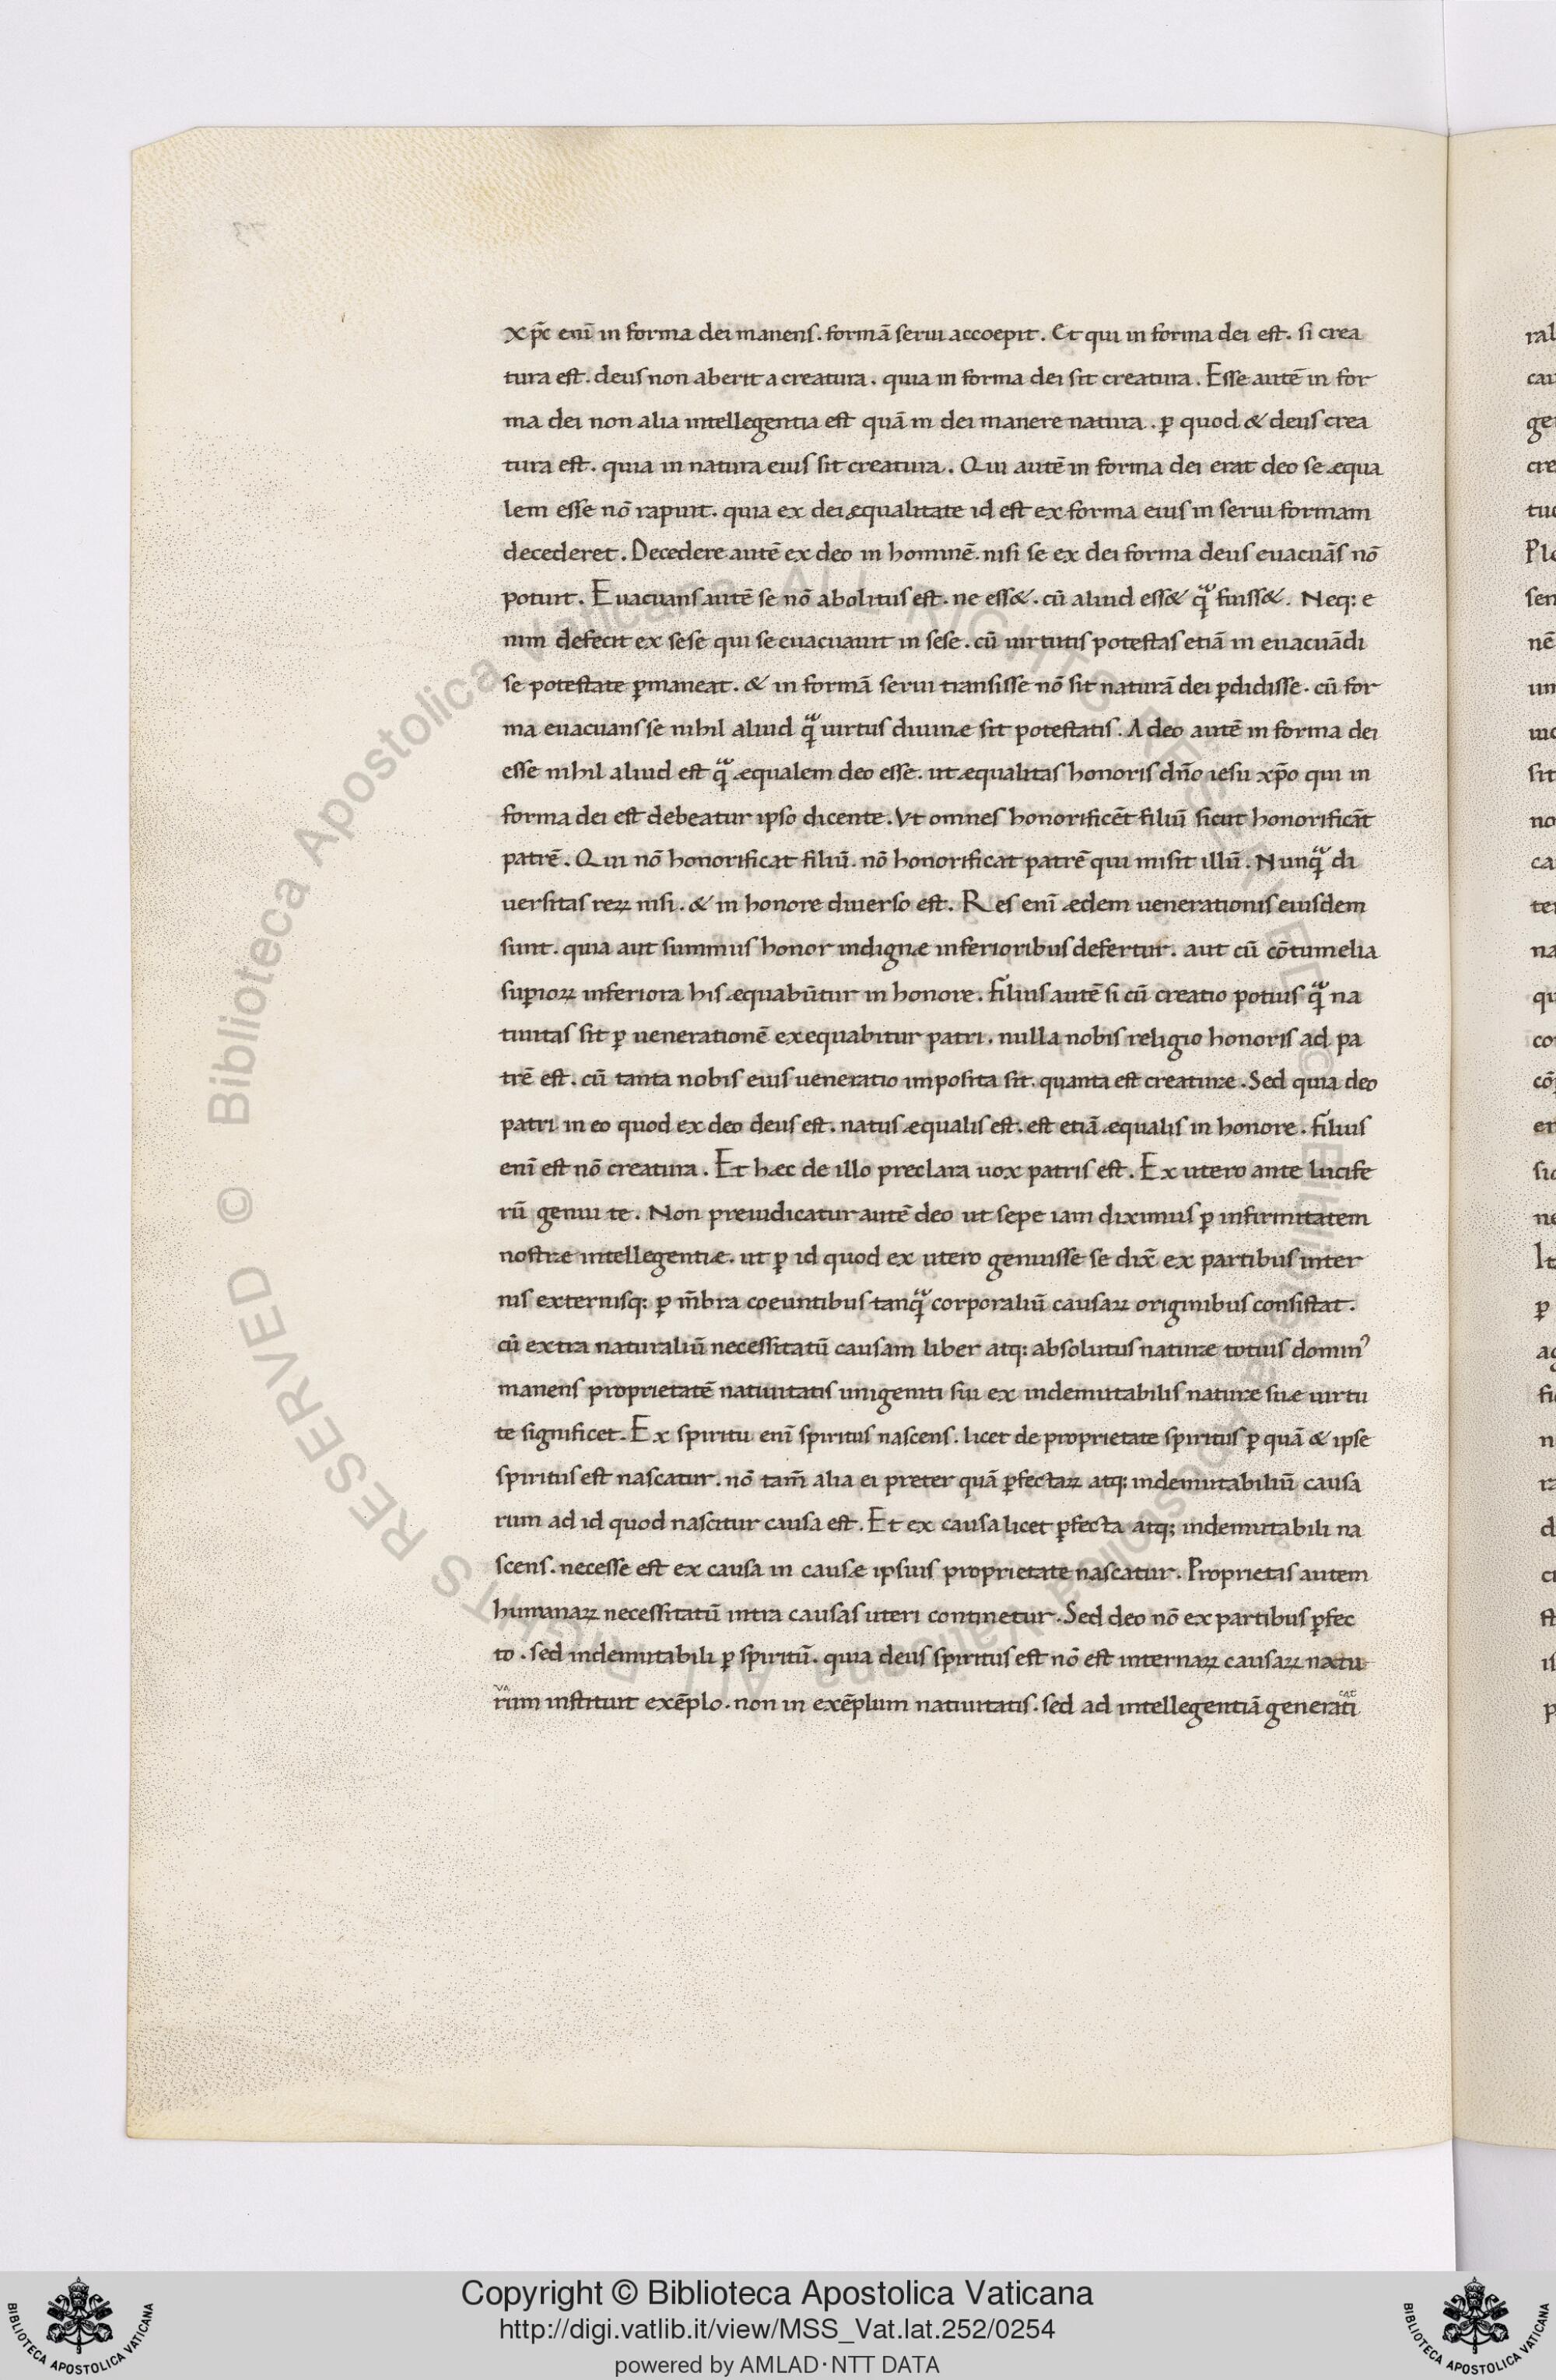 xp̄c enī in forma dei manens. formā serui accoepit. Et qui in forma dei est. si crea
tura est. deus non aberit a creatura. quia in forma dei sit creatura. Esse autē in for
ma dei non alia intellegentia est quā in dei manere natura. ꝑ quod & deus crea
tura est. quia in natura eius sit creatura. Qui autē in forma dei erat deo se æqua
lem esse nō rapuit. quia ex dei æqualitate id est ex forma eius in serui formam
decederet. Decedere autē ex deo in hominē. nisi se ex dei forma deus euacuās nō
potuit. Euacuans autē se nō abolitus est. ne ess&. cū aliud ess& qͣ̃ fuiss&. Neq: e
nim defecit ex sese qui se euacuauit in sese. cū uirtutis potestas etiā in euacuādi
se potestate ꝑmaneat. & in formā serui transisse nō sit naturā dei ꝑdidisse. cū for
ma euacuans se nihil aliud qͣ̃ uirtus diuinæ sit potestatis. Adeo autē in forma dei
esse nihil aliud est qͣ̃ æqualem deo esse. ut æqualitas honoris dn̄o iesu xp̄o qui in
forma dei est debeatur ipso dicente. Vt omnes honorificēt filiū sicut honorificāt
patrē. Qui nō honorificat filiū. nō honorificat patrē qui misit illū. Nunqͣ̃ di
uersitas reꝝ nisi. & in honore diuerso est. Res enī ædem uenerationis eiusdem
sunt. quia aut summus honor indignæ inferioribus defertur. aut cū cōtumelia
suꝑioꝝ inferiora his æquabūtur in honore. filius autē si cū creatio potius qͣ̃ na
tiuitas sit ꝑ uenerationē exequabitur patri. nulla nobis religio honoris ad pa
trē est. cū tanta nobis eius ueneratio imposita sit. quanta est creaturæ. Sed quia deo
patri in eo quod ex deo deus est. natus æqualis est. est etiā æqualis in honore. filius
enī est nō creatura. Et hæc de illo preclara uox patris est. Ex utero ante lucife
rū genui te. Non preiudicatur autē deo ut sepe iam diximus ꝑ infirmitatem
nostræ intellegentiæ. ut ꝑ id quod ex utero genuisse se dix̄ ex partibus inter
nis externisq: ꝑ m̄bra coeuntibus tanqͣ̃ corporaliū causaꝝ originibus consistat.
cū extra naturaliū necessitatū causam liber atq: absolutus naturæ totius domin᾽
manens proprietatē natiuitatis unigeniti sui ex indemutabilis naturæ suæ uirtu
te significet. Ex spiritu enī spiritus nascens. licet de proprietate spiritus ꝑ quā & ipse
spiritus est nascatur. nō tam̄ alia ei preter quā ꝑfectaꝝ atq: indemutabiliū causa
rum ad id quod nascitur causa est. Et ex causa licet ꝑfecta atq; indemutabili na
scens. necesse est ex causa in causæ ipsius proprietate nascatur. Proprietas autem
humanaꝝ necessitatū intra causas uteri continetur. Sed deo nō ex partibus ꝑfec
to. sed indemutabili ꝑ spiritū. quia deus spiritus est nō est internaꝝ causaꝝ natu
rum instituit exēplo. non in exēplum natiuitatis. sed ad intellegentiā generati
Copyright © Biblioteca Apostolica Vaticana
http://digi.vatlib.it/view/MSS_Vat.lat.252/0254
powered by AMLAD·NTT DATA